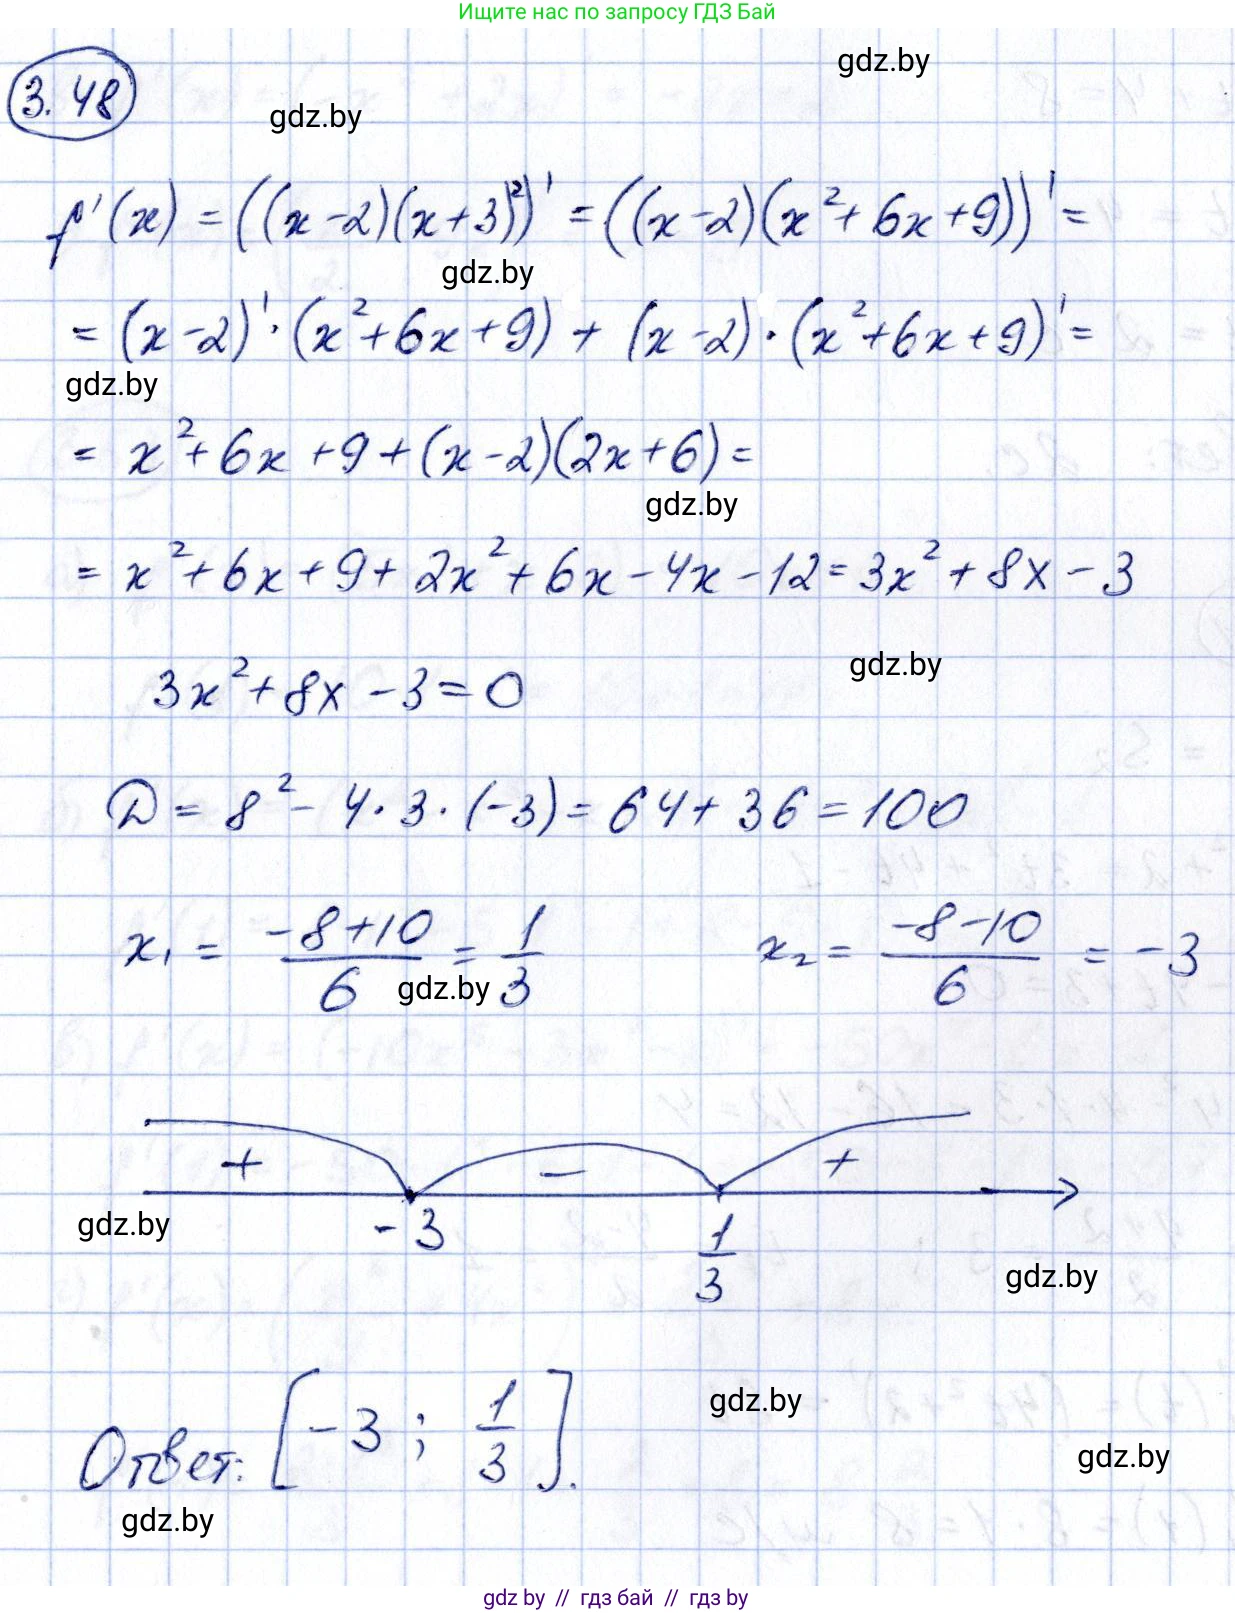 Ищите нас по запросу ГДЗ Бай
3.48
gdz.by
gdz.by
f'(x) = ((x-2)(x+3)²)' = ((x-2)(x²+6x+9))' =
gdz.by
= (x-2)'·(x²+6x+9) + (x-2)·(x²+6x+9)' =
gdz.by
= x²+6x+9+(x-2)(2x+6)=
gdz.by
= x²+6x+9+2x²+6x-4x-12=3x²+8x-3
gdz.by
3x²+8x-3=0
D = 8²-4·3·(-3)=64+36=100
x₁ = \frac{-8+10}{6} = \frac{1}{3} x₂ = \frac{-8-10}{6} = -3
gdz.by
+ - +
-3 \frac{1}{3}
gdz.by
gdz.by
Ответ: [-3; \frac{1}{3}].
gdz.by
gdz.by
gdz.by
gdz by // гдз бай // гдз by